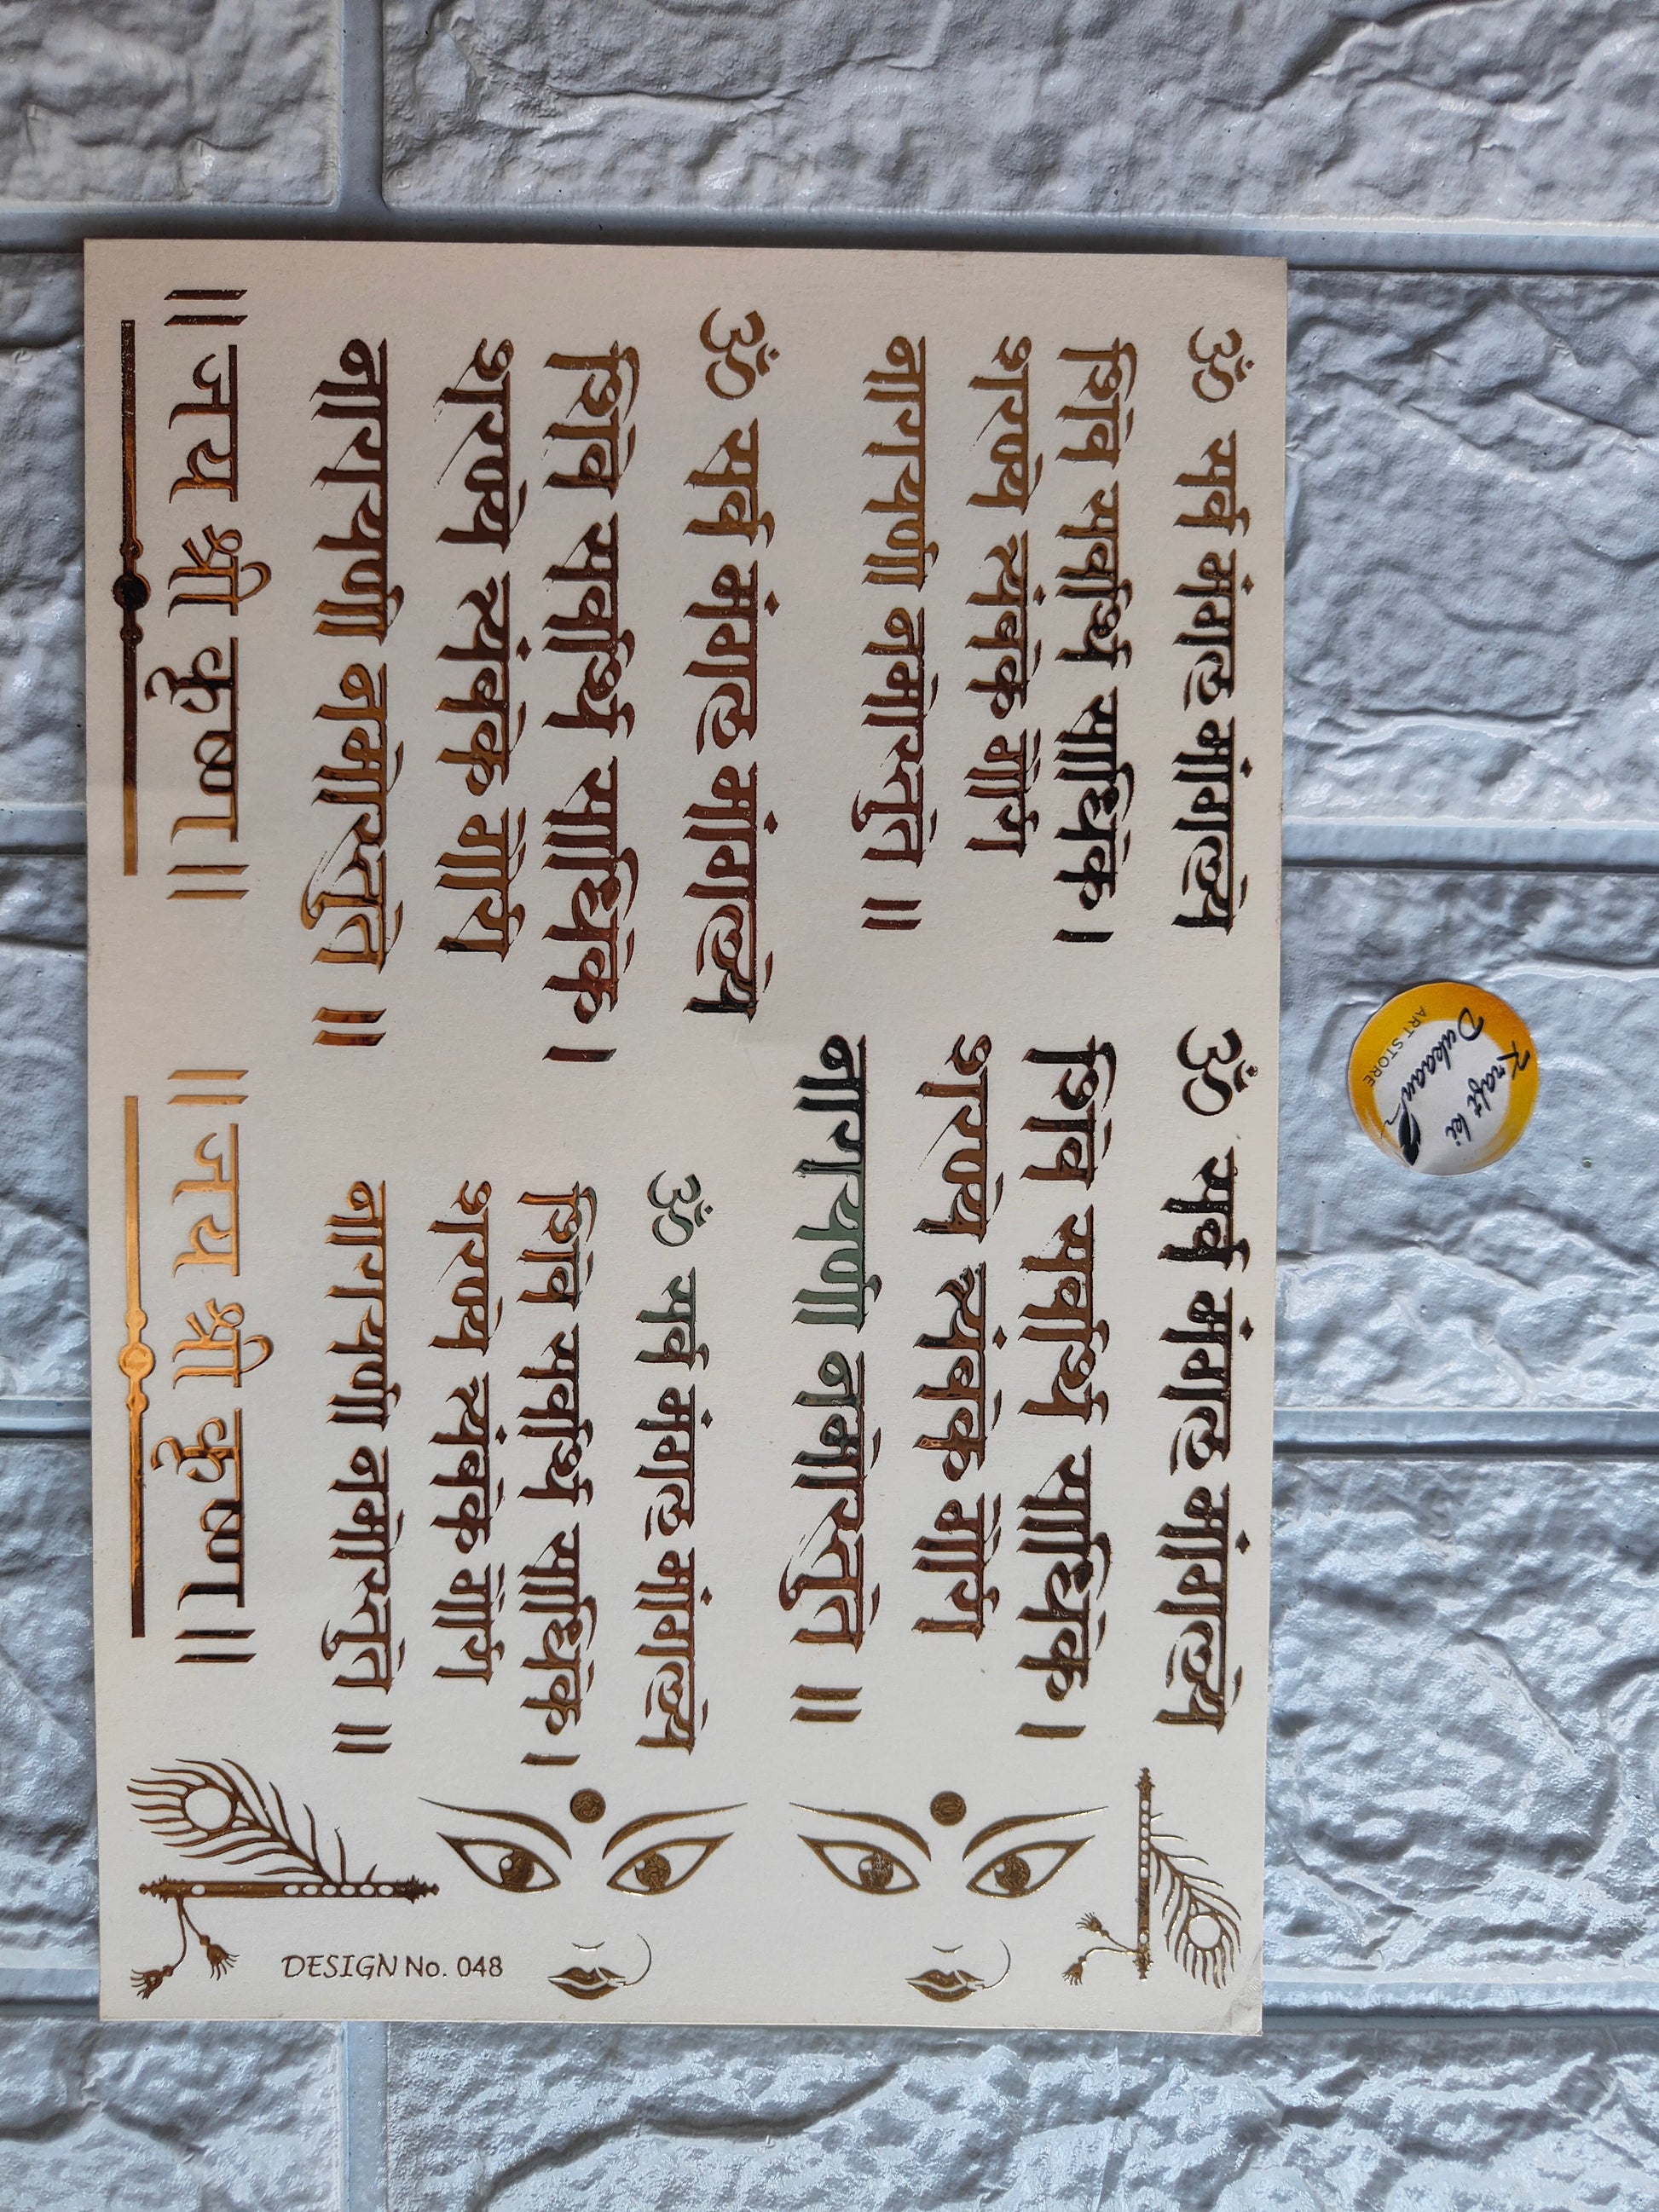 ॐ सर्व मंगल मांगल्ये
शिवे सर्वार्थ साधिके ।
शरण्ये त्र्यंबके गौरी
नारायणी नमोस्तुते ॥
ॐ सर्व मंगल मांगल्ये
शिवे सर्वार्थ साधिके ।
शरण्ये त्र्यंबके गौरी
नारायणी नमोस्तुते ॥
ॐ सर्व मंगल मांगल्ये
शिवे सर्वार्थ साधिके ।
शरण्ये त्र्यंबके गौरी
नारायणी नमोस्तुते ॥
ॐ सर्व मंगल मांगल्ये
शिवे सर्वार्थ साधिके ।
शरण्ये त्र्यंबके गौरी
नारायणी नमोस्तुते ॥
॥ जय श्री कृष्ण ॥
॥ जय श्री कृष्ण ॥
DESIGN No. 048
Kraft ki
Dukaan
ART STORE